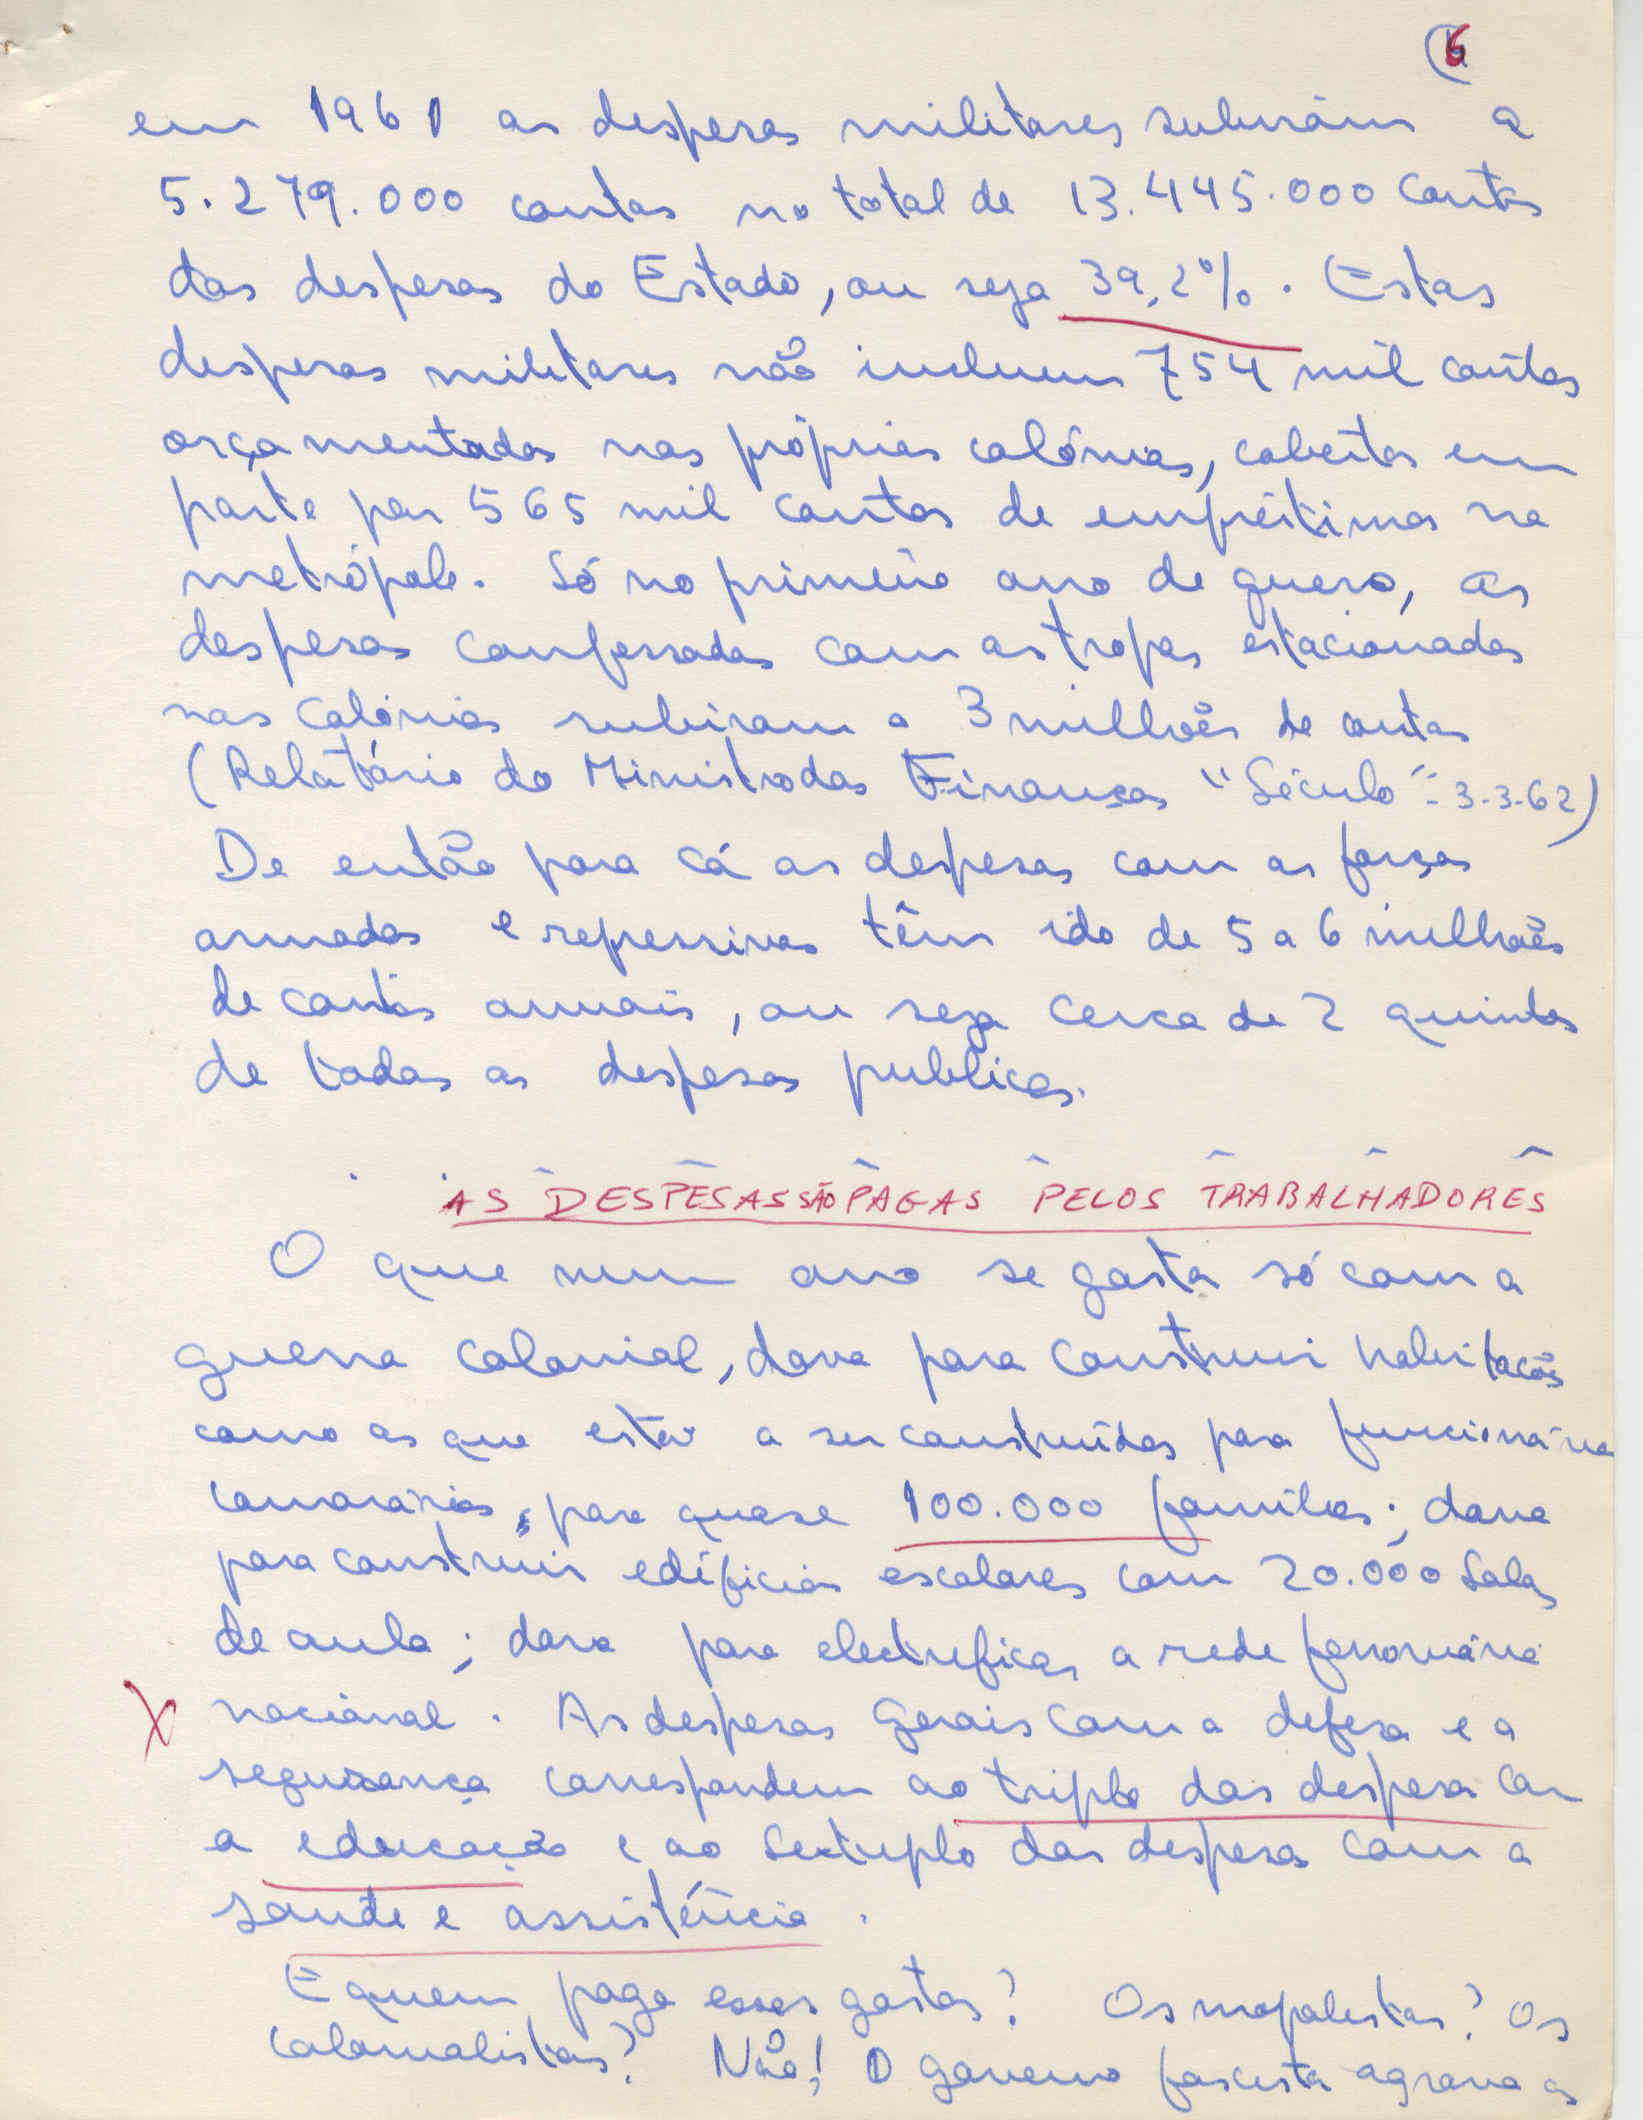 6
em 1961 as despesas militares subiram a
5.279.000 contos no total de 13.445.000 contos
das despesas do Estado, ou seja 39,2%. Estas
despesas militares não incluem 754 mil contos
orçamentados nas próprias colónias, cobertos em
parte por 565 mil contos de empréstimos na
metrópole. Só no primeiro ano de guerra, as
despesas confessadas com as tropas estacionadas
nas colónias subiram a 3 milhões de contos
(Relatório do Ministro das Finanças "Século" - 3-3-62)
De então para cá as despesas com as forças
armadas e repressivas têm ido de 5 a 6 milhões
de contos anuais, ou seja cerca de 2 quintos
de todas as despesas publicas.
AS DESPESAS SÃO PAGAS PELOS TRABALHADORES
O que num ano se gasta só com a
guerra colonial, dava para construir habitações
como as que estão a ser construídas para funcionários
camarários, para quase 100.000 famílias; dava
para construir edifícios escolares com 20.000 salas
de aula; dava para electrificar a rede ferroviária
nacional. As despesas gerais com a defesa e a
segurança correspondem ao triplo das despesas com
a educação e ao sextuplo das despesas com a
saude e assistência.
E quem paga esses gastos? Os mopolistas? Os
colonialistas? Não! O governo fascista agrava as